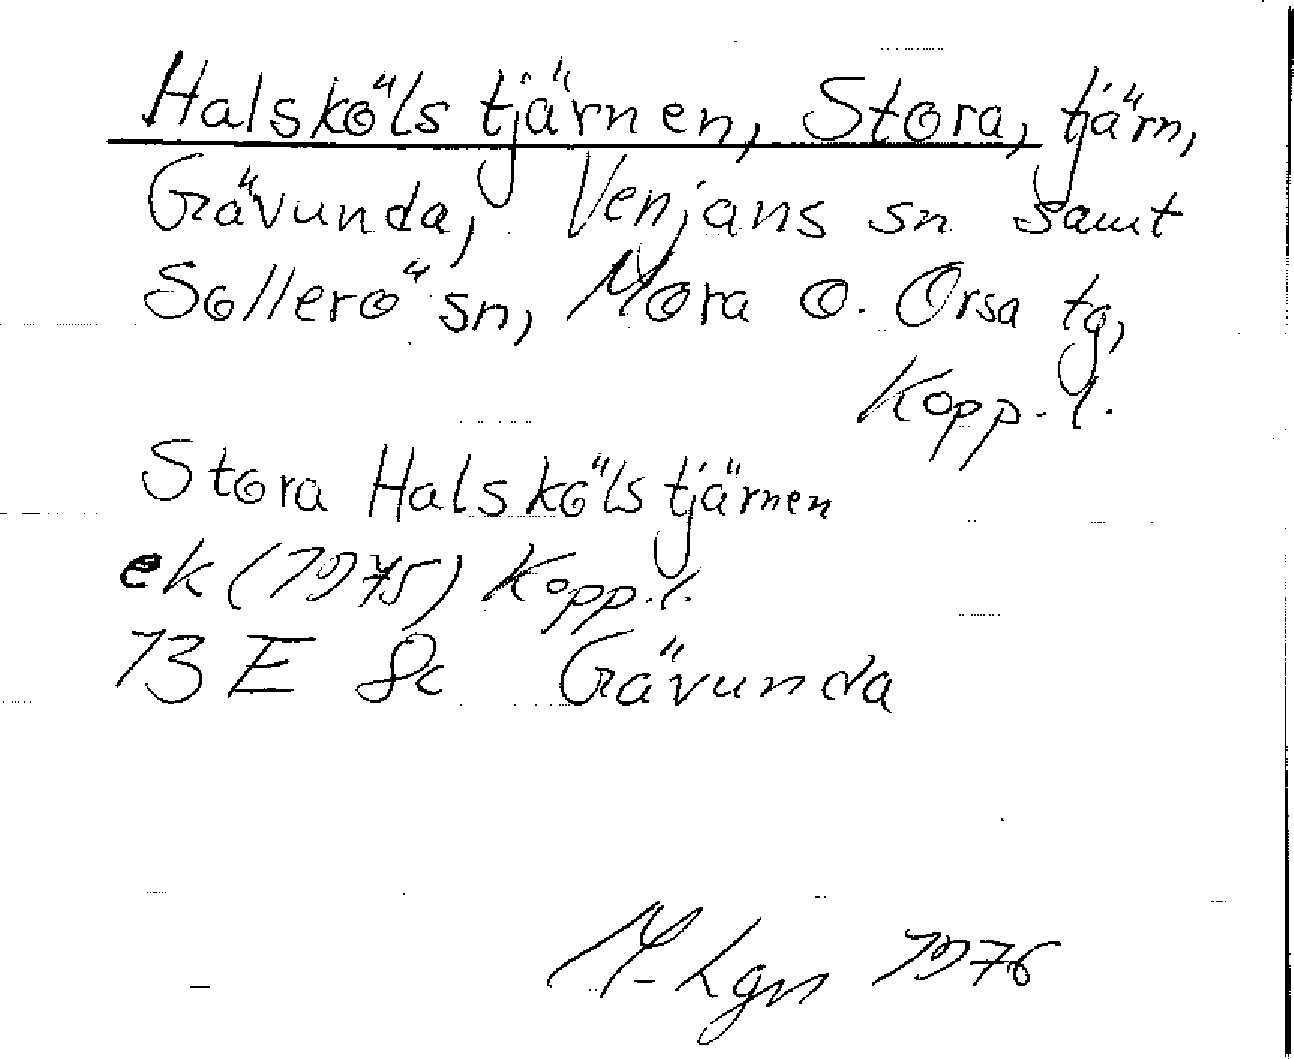 Halsköls tjärnen, Stora, tjärn,
Gävunda, Venjans sn samt
Sollerö sn, Mora o. Orsa tg,
Kopp. l.
Stora Halskölstjärnen
ek (1975) Kopp. l.
13 E 8c Gävunda
M-Lgn 1976